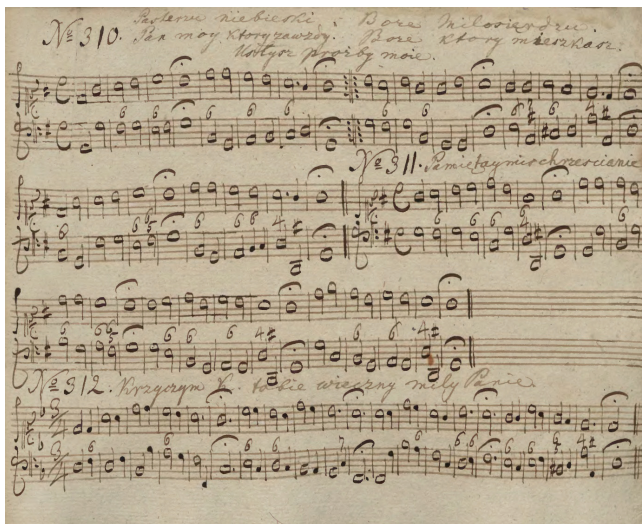 Pasterzu niebieski. Boże miłosierdzu.
No 310. Pan moy ktory zawzdy. Boże ktory mieszkasz.
Usłysz proźby moie.
No 311. Pamiętay mio chrzescianie
No 312. Krzyczym k. tobie wieczny mily Panie